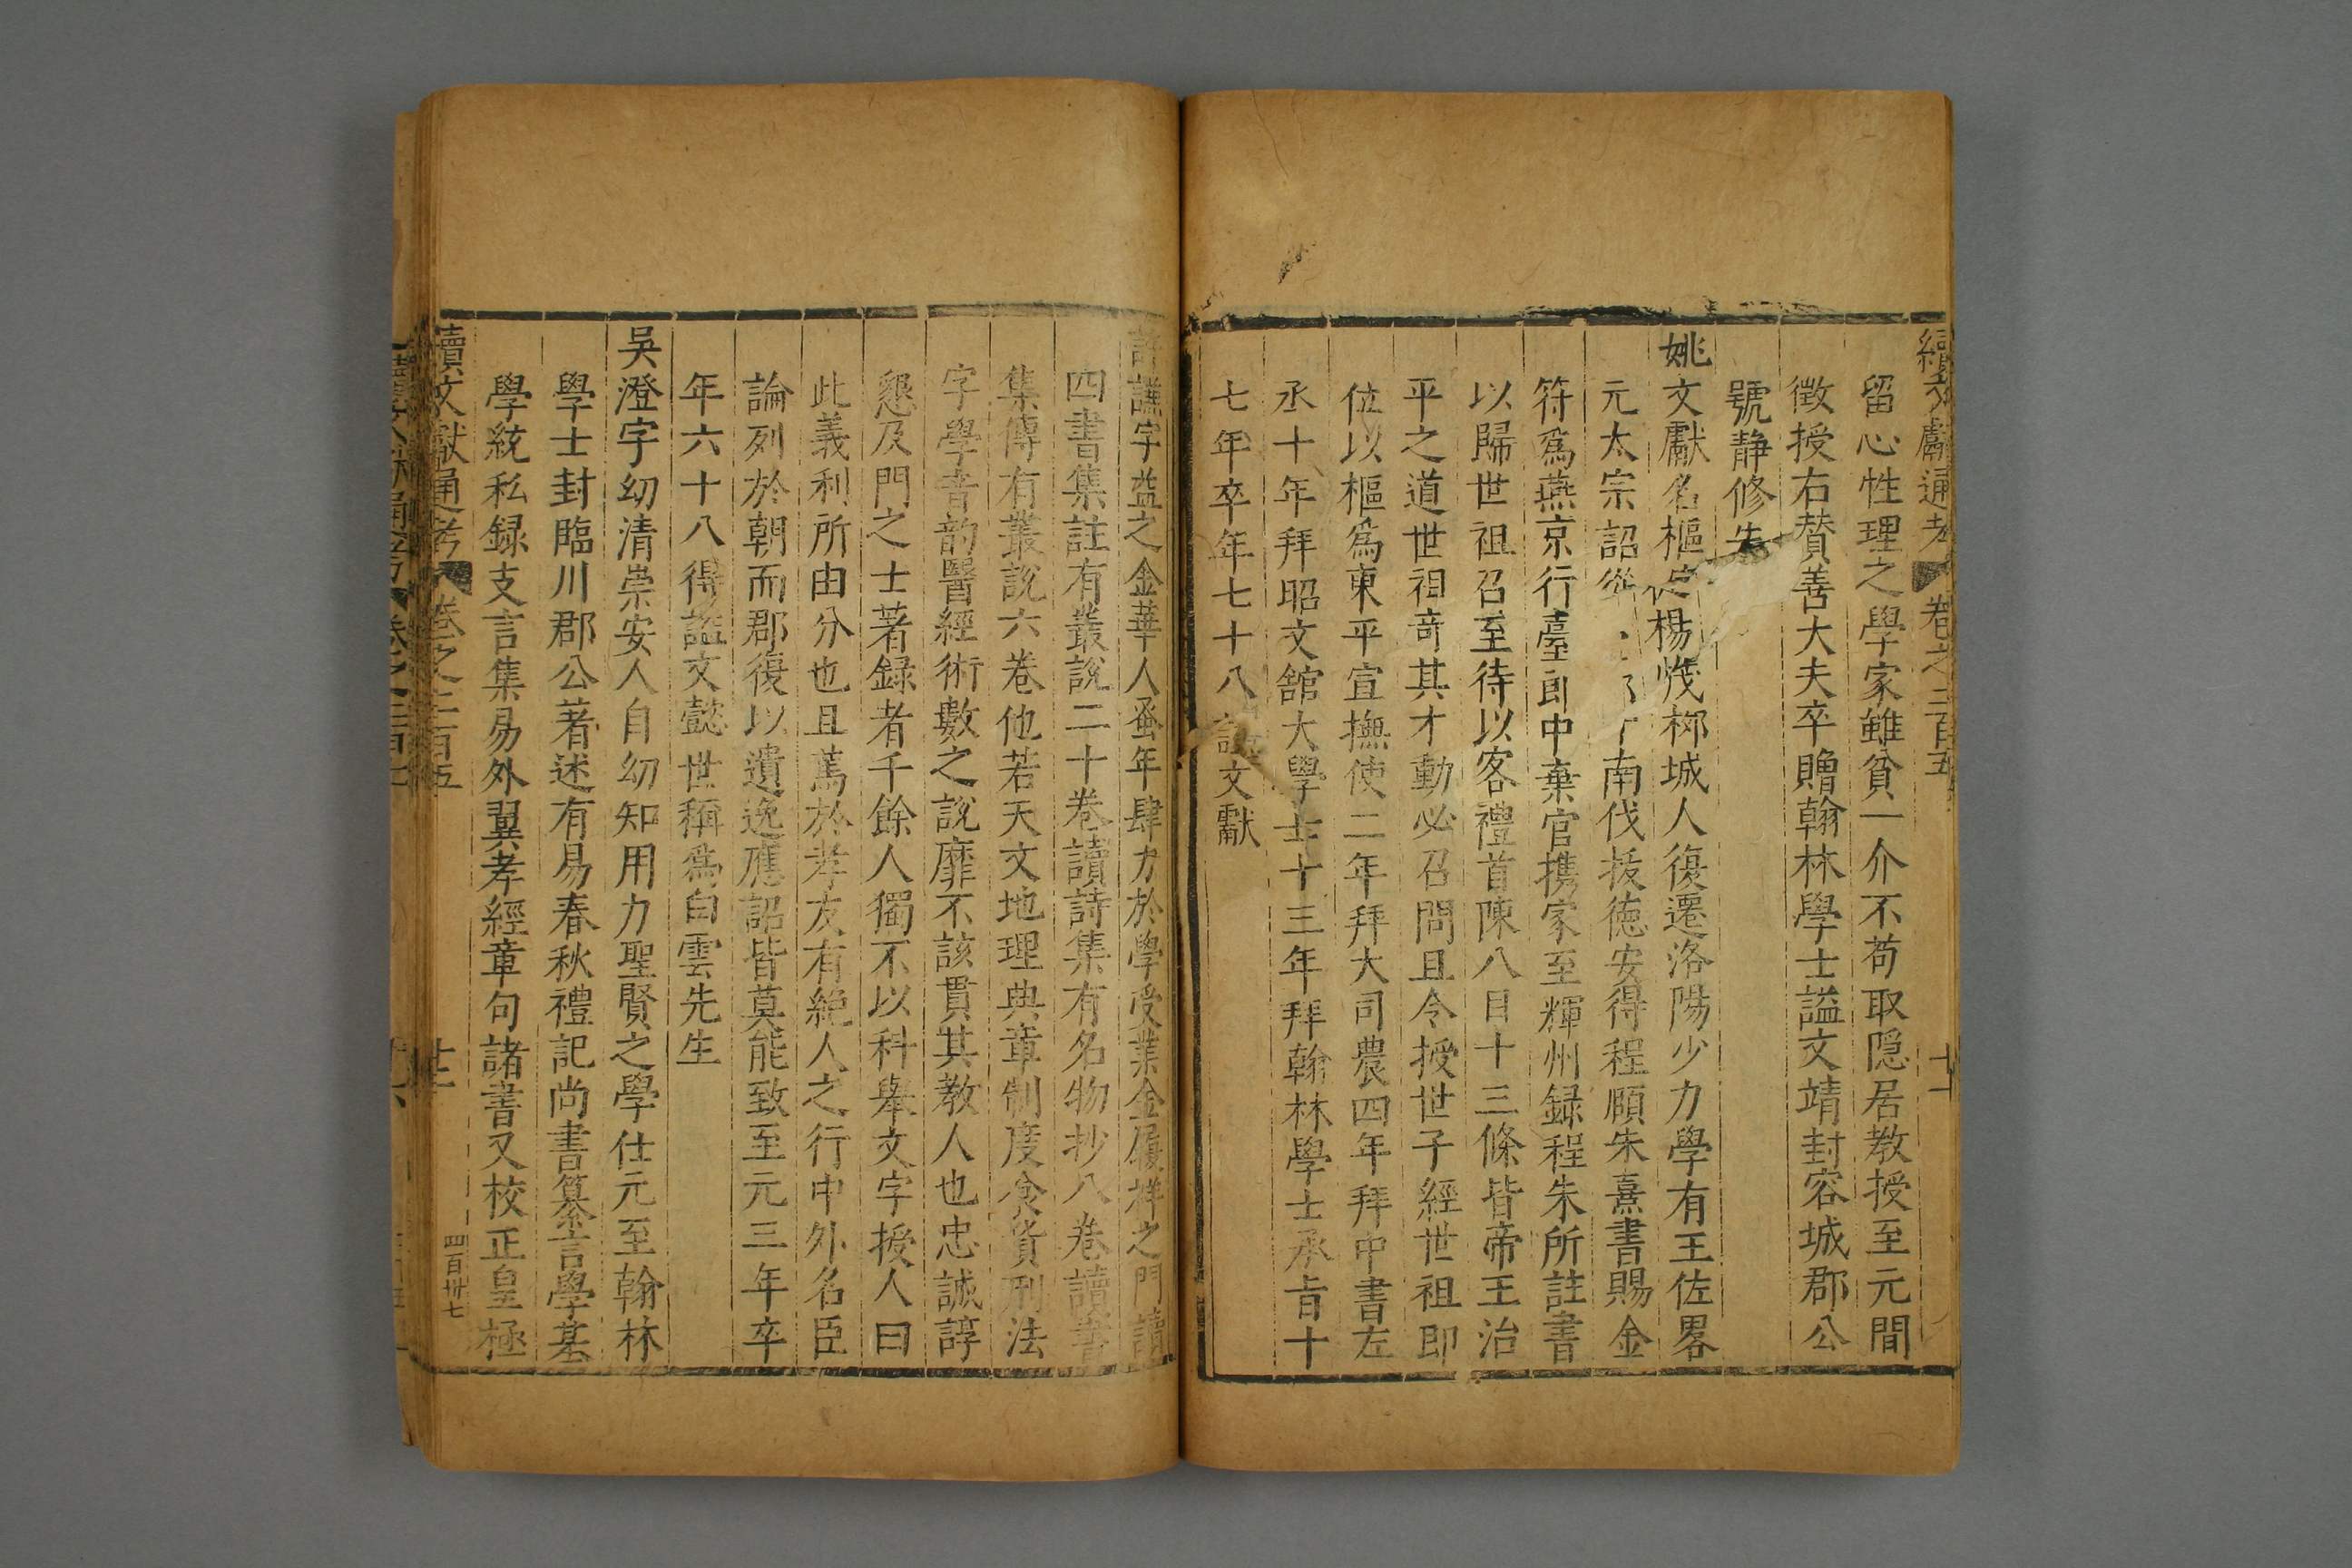 續文獻通考 卷之二百五 十一
留心性理之學家雖貧一介不苟取隱居教授至元間
徵授右賛善大夫卒贈翰林學士謚文靖封容城郡公
號静修先
姚文獻名樞 楊 栁城人復遷洛陽少力學有王佐畧
元太宗詔從 南伐拔德安得程頤朱熹書賜金
符爲燕京行臺郎中棄官携家至輝州録程朱所註書
以歸世祖召至待以客禮首陳八目十三條皆帝王治
平之道世祖竒其才動必召問且令授世子經世祖即
位以樞爲東平宣撫使二年拜大司農四年拜中書左
丞十年拜昭文舘大學士十三年拜翰林學士承旨十
七年卒年七十八謚文獻
許謙字益之金華人蚤年肆力於學受業金履祥之門讀
四書集註有叢說二十卷讀詩集有名物抄八卷讀書
集傳有叢說六卷他若天文地理典章制度食貨刑法
字學音韵醫經術數之說靡不該貫其教人也忠誠諄
懇及門之士著録者千餘人獨不以科舉文字授人曰
此義利所由分也且篤於孝友有絶人之行中外名臣
論列於朝而郡復以遺逸應詔皆莫能致至元三年卒
年六十八得謚文懿世稱爲白雲先生
吳澄字幼清崇安人自幼知用力聖賢之學仕元至翰林
學士封臨川郡公著述有易春秋禮記尚書纂言學基
學統私録支言集易外翼孝經章句諸書又校正皇極
續文獻通考 卷之二百五 十二 四百卅七